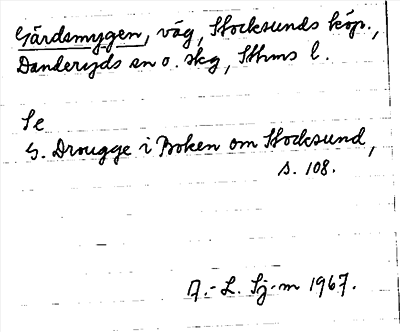 Gärdsmygen, väg, Stocksunds köp.,
Danderyds sn o. skg, Sthms l.
Se
G. Drougge i Boken om Stocksund,
s. 108.
A.-L. Sj-m 1967.